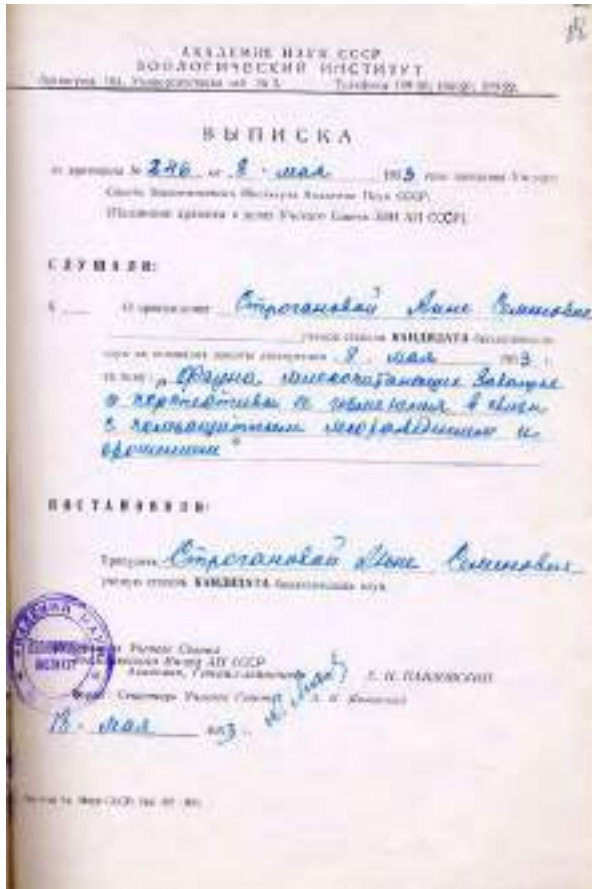 АКАДЕМИЯ НАУК СССР
ЗООЛОГИЧЕСКИЙ ИНСТИТУТ
ВЫПИСКА
из протокола № 246 от 8 - мая 1953 года заседания Ученого
Совета Зоологического Института Академии Наук СССР.
(Подлинник хранится в делах Ученого Совета ЗИН АН СССР).
СЛУШАЛИ:
О присуждении Строгановой Анне Семеновне
ученой степени КАНДИДАТА биологических
наук на основании защиты диссертации 8 мая 1953 г.
на тему: „Фауна млекопитающих
и перспективы ее изменения в связи
с полезащитным лесоразведением и
орошением"
ПОСТАНОВИЛИ:
Присудить Строгановой Анне Семеновне
ученую степень КАНДИДАТА биологических наук
АКАДЕМИЯ НАУК
Ученого Совета
АН СССР
Академик, Генерал-лейтенант Е. Н. ПАВЛОВСКИЙ
Секретарь Ученого Совета
18 - мая 1953 г.